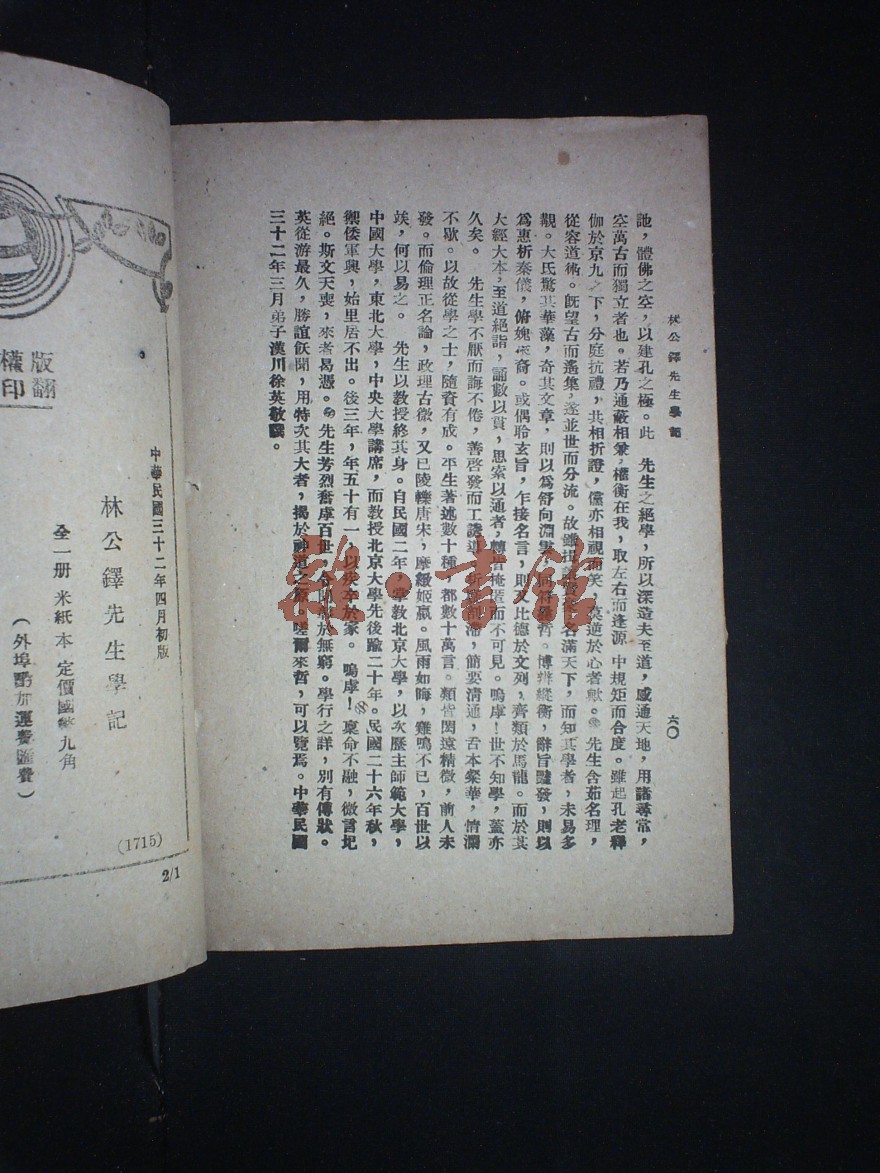 林公鐸先生學記
六〇
訑，體佛之空，以建孔之極。此　先生之絕學，所以深造夫至道，感通天地，用諸尋常，
空萬古而獨立者也。若乃通蔽相兼，權衡在我，取左右而逢源，中規矩而合度。雖起孔老釋
伽於京九之下，分庭抗禮，共相折證，儻亦相視而笑，莫逆於心者歟。先生含茹名理，
從容道術。旣望古而遙集，遂並世而分流。故雖 名滿天下，而知其學者，未易多
觀。大氐驚其華藻，奇其文章，則以爲舒向淵雲，同符 。博辨縱衡，辭旨豔發，則以
爲惠析秦儀，俯媿 裔。或偶聆玄旨，乍接名言，則又比德於文列，齊類於馬龍。而於其
大經大本，至道絕詣，誦數以貫，思索以通者，轉皆掩匿而不可見。嗚虖！世不知學，蓋亦
久矣。　先生學不厭而誨不倦，善啓發而工誘導， 簡要清通，舌本粲華，情瀾
不歇。以故從學之士，隨資有成。平生著述數十種，都數十萬言。類皆閎遠精微，前人未
發。而倫理正名論，政理古微，又已陵轢唐宋，摩 姬嬴。風雨如晦，雞鳴不已，百世以
竢，何以易之。　先生以教授終其身。自民國二年，掌教北京大學，以次歷主師範大學，
中國大學，東北大學，中央大學講席，而教授北京大學先後踰二十年。民國二十六年秋，
禦倭軍興，始里居不出。後三年，年五十有一，以疾卒於家。　嗚虖！稟命不融，微言圮
絕。斯文天喪，來者曷憑。先生芳烈奮虖百世，令聞 於無窮。學行之詳，別有傳狀。
英從游最久，勝誼飫聞，用特次其大者，揭於神道之原。嗟爾來哲，可以覽焉。中華民國
三十二年三月弟子漢川徐英敬譔。
版權
翻印
中華民國三十二年四月初版
林公鐸先生學記
全一册 米紙本 定價國幣九角
（外埠酌加運費匯費）
(1715)
2/1
書館